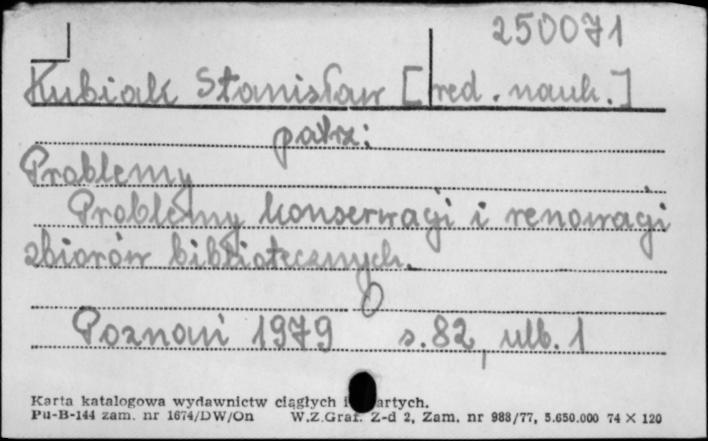 250071
Kubiak Stanisław [red. nauk.]
patrz:
Problemy
Problemy konserwacji i renowacji
zbiorów bibliotecznych.
Poznań 1979 s. 82, ulb. 1
Karta katalogowa wydawnictw ciągłych i artych.
Pu-B-144 zam. nr 1674/DW/On W.Z.Graf. Z-d 2, Zam. nr 988/77, 5.650.000 74 × 120